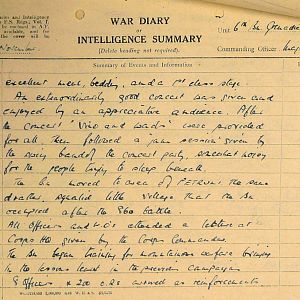 Intelligence
F.S. Regs., Vol. I.
be enclosed in A.F.
available, and for
the cover will be
WAR DIARY
or
INTELLIGENCE SUMMARY
(Delete heading not required).
Unit 6th Bn. Grenadier
Commanding Officer
Summary of Events and Information
excellent meal, bedding, and a 1st class stage.
An extraordinarily good concert was given and
enjoyed by an appreciative audience. After
the concert "Vino and wads" were provided
for all, then followed a jam session given by
the swing band of the concert party, somewhat noisy
for the people trying to sleep beneath.
The Bn moved to area of PETRURO the same
derelict, squalid little village that the Bn
occupied after the 860 battle.
All Officers and W.Os attended a lecture at
Corps HQ given by the Corps Commander.
The Bn began training for mountainous warfare bringing
in the lessons learnt in the previous campaign
8 Officers & 200 O.Rs arrived as reinforcements